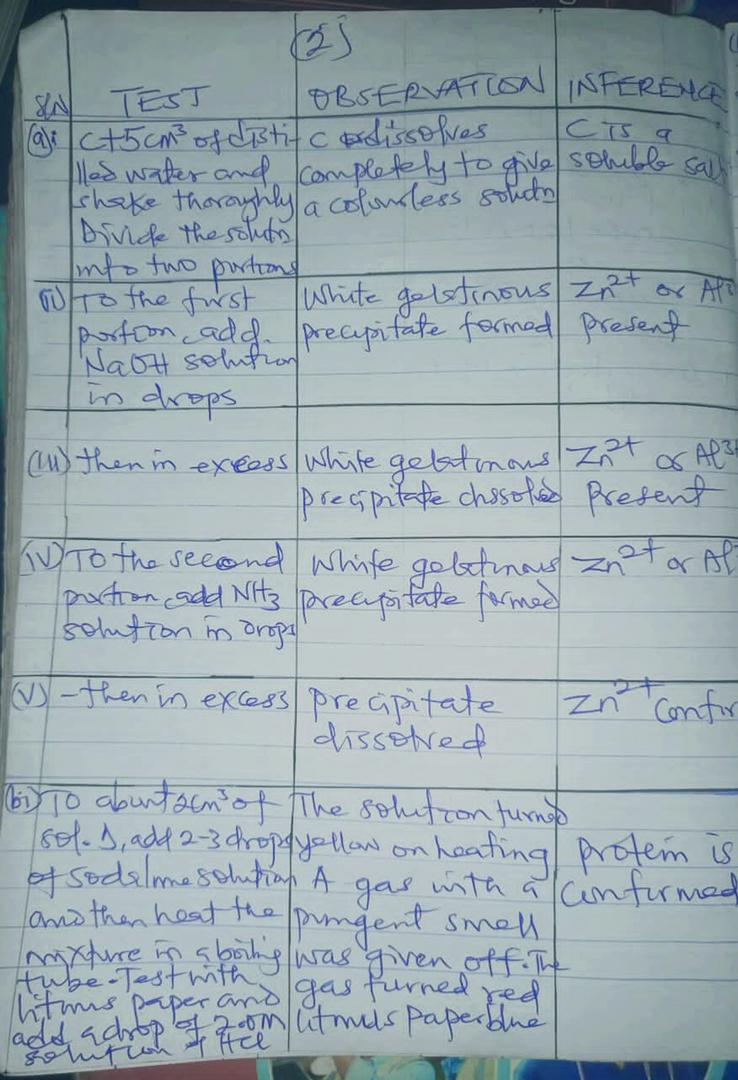 (2)
S/N TEST OBSERVATION INFERENCE
(a)i C+5cm³ of disti-
lled water and
shake thoroughly
Divide the solutn
into two portions
C dissolves
completely to give
a colourless solutn
C is a
soluble salt
(ii) To the first
portion, add
NaOH solution
in drops
White gelatinous
precipitate formed
Zn²⁺ or Al³
Present
(iii) then in excess
White gelatinous
precipitate dissolved
Zn²⁺ or Al³⁺
Present
(iv) To the second
portion, add NH3
solution in drops
White gelatinous
precipitate formed
Zn²⁺ or Al
(v) - then in excess
precipitate
dissolved
Zn²⁺ Confir
(bi) To about 2cm³ of
sol. D, add 2-3 drops
of Sodalime solution
and then heat the
mixture in a boiling
tube. Test with
litmus paper and
add a drop of 2.0M
solution of HCl
The solution turned
yellow on heating
A gas with a
pungent smell
was given off. The
gas turned red
litmus paper blue
protein is
Confirmed